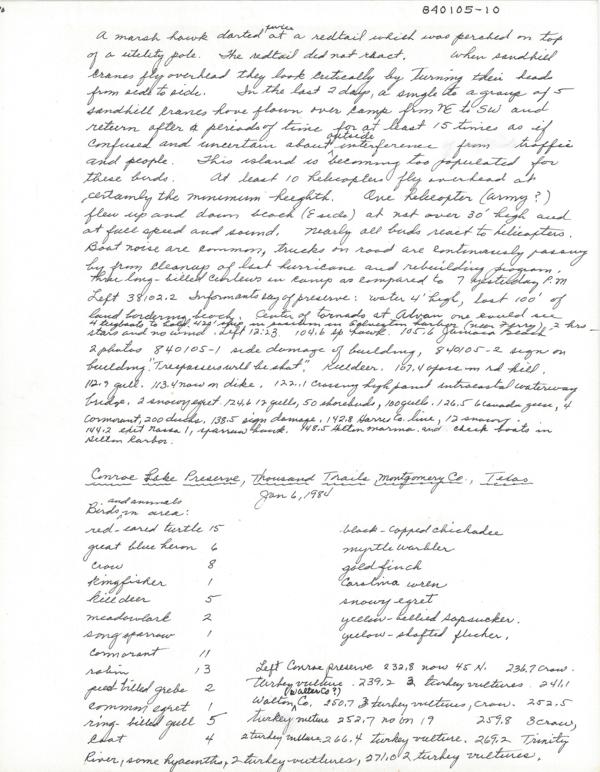 840105-10
A marsh hawk darted twice at a redtail which was perched on top
of a utility pole. The redtail did not react. When sandhill
cranes fly overhead they look critically by turning their heads
from side to side. In the last 2 days, a single to a group of 5
sandhill cranes have flown over camp from NE to SW and
return after a periods of time for at least 15 times as if
confused and uncertain about outside interference from traffic
and people. This island is becoming too populated for
these birds. At least 10 helicopters fly overhead at
certainly the minimum heighth. One helicopter (army?)
flew up and down beach (E side) at not over 30' high and
at full speed and sound. Nearly all birds react to helicopters.
Boat noise are common, trucks on road are continuously passing
by from cleanup of last hurricane and rebuilding program.
Three long-billed curlews in camp as compared to 7 yesterday P.M
Left 38102.2 Informants say of preserve: water 4' high, lost 100' of
land bordering beach. Center of tornado at Alvan one could see
4 tugboats to 422' ship in Galveston harbor (near Ferry), 2 hrs-
stars and no wind. Left 12:23. 104.6 sp hawk. 105.6 Jamaica Beach
2 photos 840105-1 side damage of building, 840105-2 sign on
building "Trespassers will be shot". Killdeer. 107.4 oposs-m rd kill.
112.9 gull. 113.4 now on dike. 122.1 crossing high point intracoastal waterway
bridge. 2 snowy egret. 124.6 12 gulls, 50 shorebirds, 100 gulls. 126.5 6 Canada geese, 4
cormorant, 200 ducks. 138.5 sign damage, 142.8 Harris Co. line, 12 snowy.
144.2 exit Nassa 1, sparrow hawk. 148.5 Hilton marina and check boats in
Hilton Harbor.
Conroe Lake Preserve, Thousand Trails, Montgomery Co., Texas
Jan 6, 1984
Birds and animals in area:
red-eared turtle 15
great blue heron 6
crow 8
kingfisher 1
killdeer 5
meadowlark 2
song sparrow 1
cormorant 11
robin 13
pied billed grebe 2
common egret 1
ring-billed gull 5
coot 4
black-capped chickadee
myrtle warbler
goldfinch
Carolina wren
snowy egret
yellow-bellied sapsucker.
yellow-shafted flicker.
Left Conroe preserve 232.8 now 45 N. 236.7 crow.
turkey vulture. 239.2 2 turkey vultures. 241.1
Walton Co. (Walter Co?) 250.7 3 turkey vultures, crow. 252.5
turkey vulture 252.7 no on 19 259.8 3 crow,
2 turkey vulture 266.4 turkey vulture. 269.2 Trinity
River, some hyacinths, 2 turkey-vultures, 271.0 2 turkey vultures,